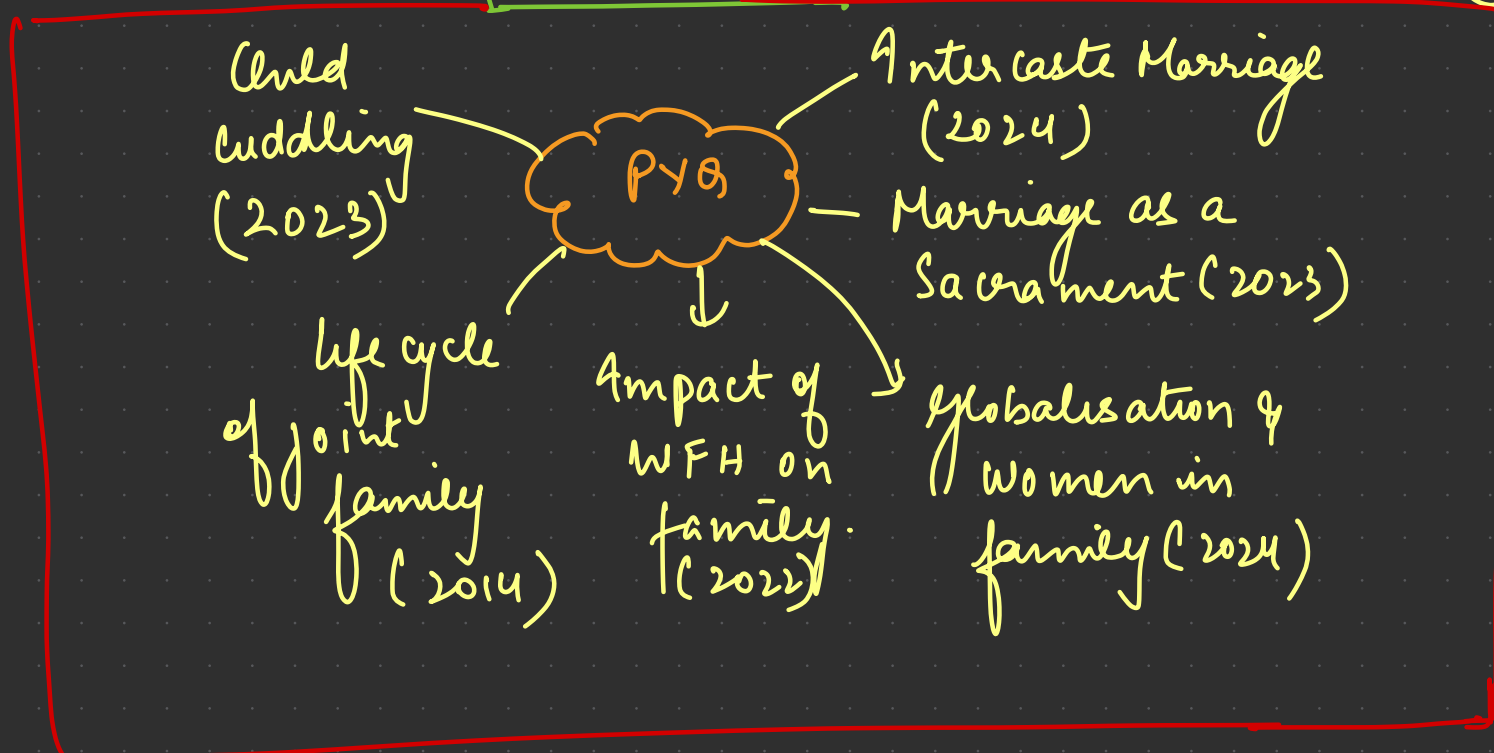 PYQ
Child
cuddling
(2023)
Intercaste Marriage
(2024)
Marriage as a
Sacrament (2023)
Life cycle
of joint
family
(2014)
Impact of
WFH on
family.
(2022)
Globalisation &
women in
family (2024)